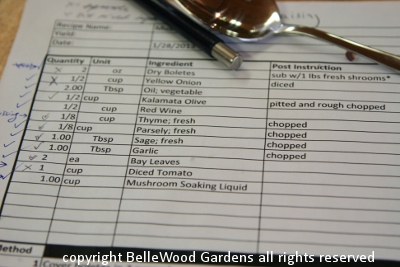 Recipe Name
Yield:
Date: 1/28/201
Quantity Unit Ingredient Post Instruction
2 ot Dry Boletes sub w/1 lbs fresh shrooms*
1/2 cup Yellow Onion diced
2.00 Tbsp Oil; vegetable
1/2 cup Kalamata Olive pitted and rough chopped
1/2 cup Red Wine
1/8 cup Thyme; fresh chopped
1/8 cup Parsely; fresh chopped
1.00 Tbsp Sage; fresh chopped
1.00 Tbsp Garlic chopped
2 ea Bay Leaves
1 cup Diced Tomato
1.00 cup Mushroom Soaking Liquid
Method
copyright BelleWood Gardens all rights reserved